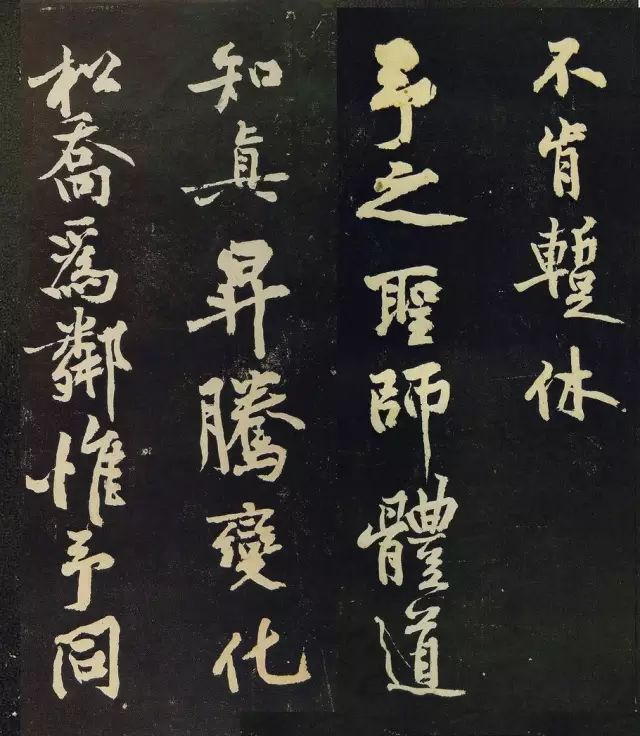 不肯蹔休
予之聖師體道
知真昇騰變化
松喬為鄰惟予同